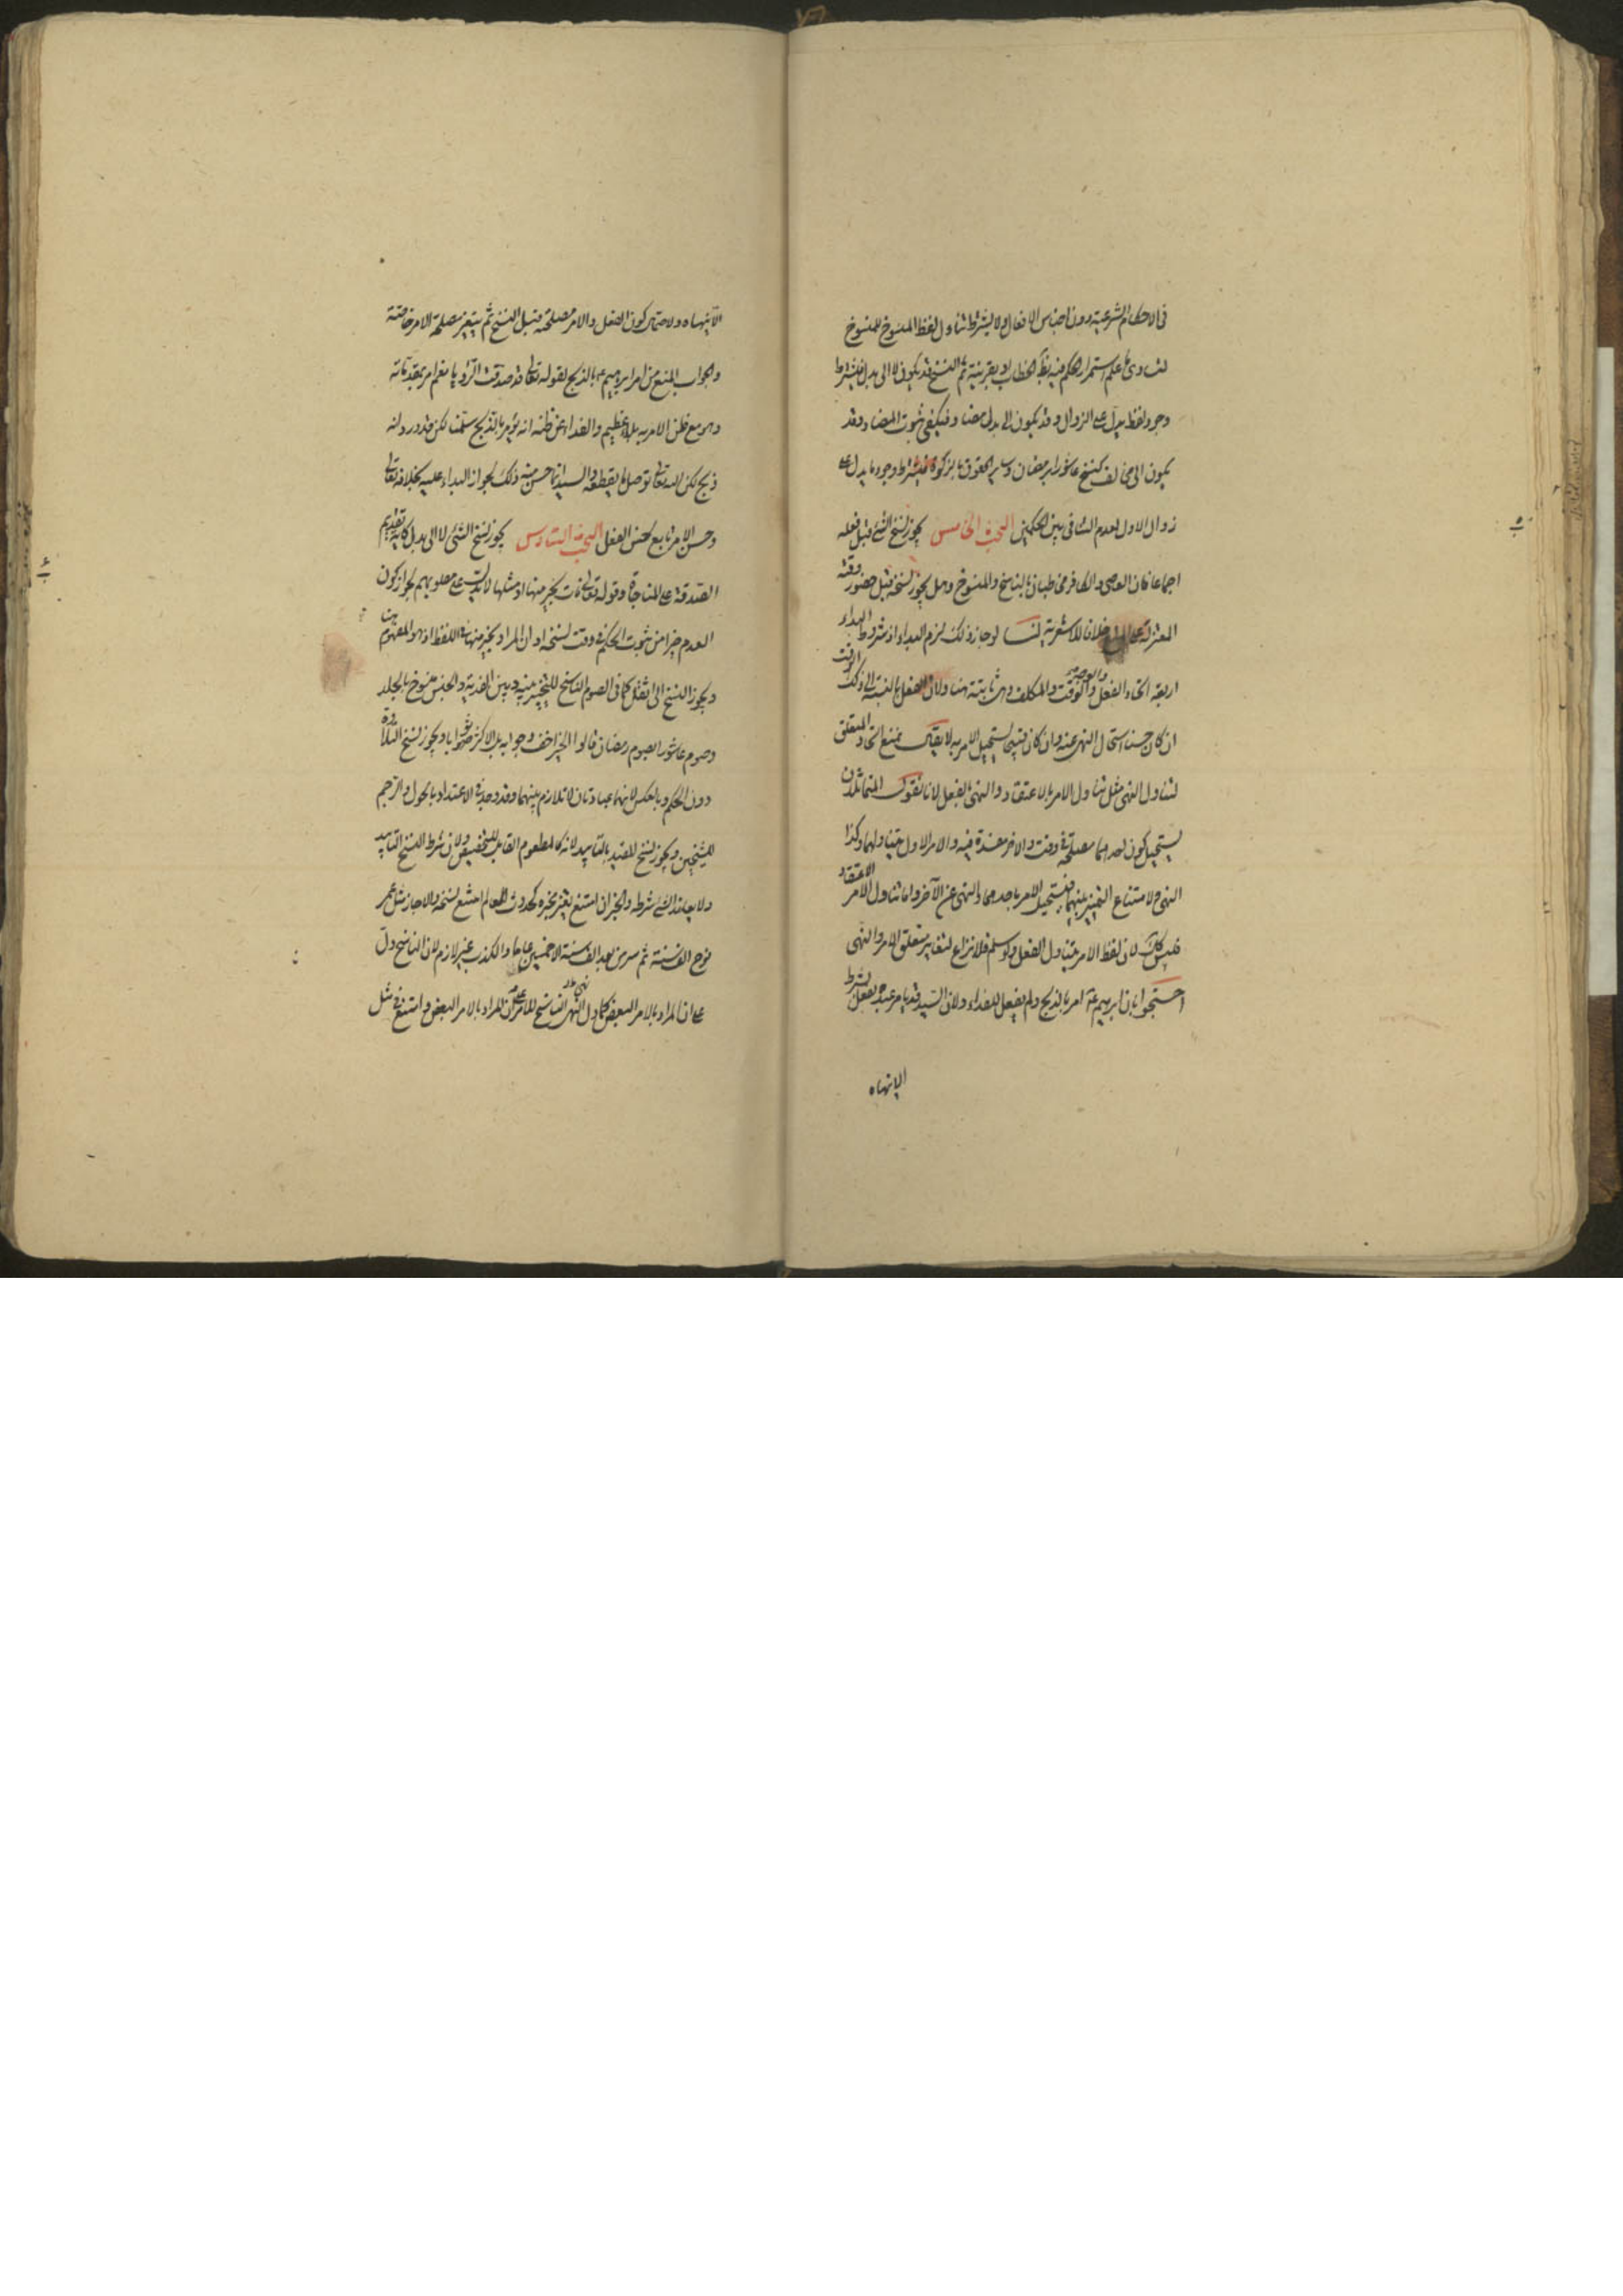 في الاحكام الشرعية دون اجناس الافعال ولا يشترط تناول لفظ المنسوخ للمنسوخ
لتساوي ما علم استمرار الحكم فيه بظاهر الخطاب او بقرينة ثم النسخ قد يكون لا الى بدل فيشترط
وجود لفظ يدل على الزوال وقد يكون الى بدل مضاد فيكفي ثبوت المضاد وقد
يكون الى مخالف كنسخ عاشورا برمضان وساير الحقوق بالزكوة فيشترط وجود ما يدل على
زوال الاول لعدم التنافي بين الحكمين البحث الخامس يجوز نسخ الشئ قبل فعله
اجماعا فان العاصي والكافر مخاطبان بالناسخ والمنسوخ وهل يجوز نسخه قبل حضور وقته
المعتزلة على المنع خلافا للاشعرية لنا لو جاز ذلك لزم البداء اذ شروط البداء
اربعة اتحاد الفعل والوجه والوقت والمكلف وهي ثابتة هنا ولان الفعل بالنسبة الى ذلك الوقت
ان كان حسنا استحال النهي عنه وان كان قبيحا استحيل الامر به لا يقال نمنع اتحاد المتعلق
لتناول النهي مثل تناول الامر بالاعتقاد والنهي بالفعل لانا نقول المتماثلان
يستحيل كون احدهما مصلحة في وقت والاخر مفسدة فيه والامر الاول يتناولهما وكذا
النهي ولامتناع التمييز بينهما فيستحيل الامر باحدهما والنهي عن الآخر واما تناول الامر الاعتقاد
فليس كذلك لان لفظ الامر يتناول الفعل ولو سلم فلا نزاع لتغاير متعلق الامر والنهي
احتجوا بان ابرهيم ع امر بالذبح ولم يفعل للفداء ولان السيد قد يامر عبده بفعل بشرط
الانهاه
الا ينهاه ولاحتمال كون الفعل والامر مصلحة قبل النسخ ثم يتغير مصلحة الامر خاصة
والجواب المنع من امر ابرهيم ع بالذبح لقوله تعالى قد صدقت الرؤيا نعم امر بمقدماته
وهو مع ظن الامر به بلاء عظيم والفداء عن ظنه انه يؤمر بالذبح سلمنا لكن قد ورد انه
ذبح لكن الله تعالى توصل ما يقطعه والسيد انما حسن منه ذلك لجواز البداء عليه بخلافه تعالى
وحسن الامر تابع لحسن الفعل البحث السادس يجوز نسخ الشئ لا الى بدل كآية تقديم
الصدقة على المناجاة وقوله تعالى نات بخير منها او مثلها لا يدل على مطلوبهم لجواز كون
العدم خيرا من ثبوت الحكم في وقت نسخه او ان المراد بخير منها في اللفظ اذ هو المفهوم هنا
ويجوز النسخ الى اثقل كما في الصوم الناسخ للتخيير بينه وبين الفدية والحبس منسوخ بالجلد
وصوم عاشورا بصوم رمضان قالوا الخير اخف وجوابه بل الاكثر ثوابا ويجوز نسخ التلاوة
دون الحكم وبالعكس لانهما عبادتان لا تلازم بينهما وقد وجد في الاعتداد بالحول والرجم
للشيخين ويجوز نسخ المقيد بالتابيد لانه كالمطعوم القابل للتخصيص ولان شرط النسخ التابيد
ولا يعاند الشئ شرطه والخبر ان امتنع تغير مخبره كحدوث العالم امتنع نسخه والا جاز مثل عمر
نوح الف سنة ثم سرى بعد الف سنة الا خمسين عاما والكذب غير لازم لان الناسخ دل
على ان المراد بالامر البعض كما دل النهي الناسخ للامر على ان المراد بالامر البعض وامتنع في مثل